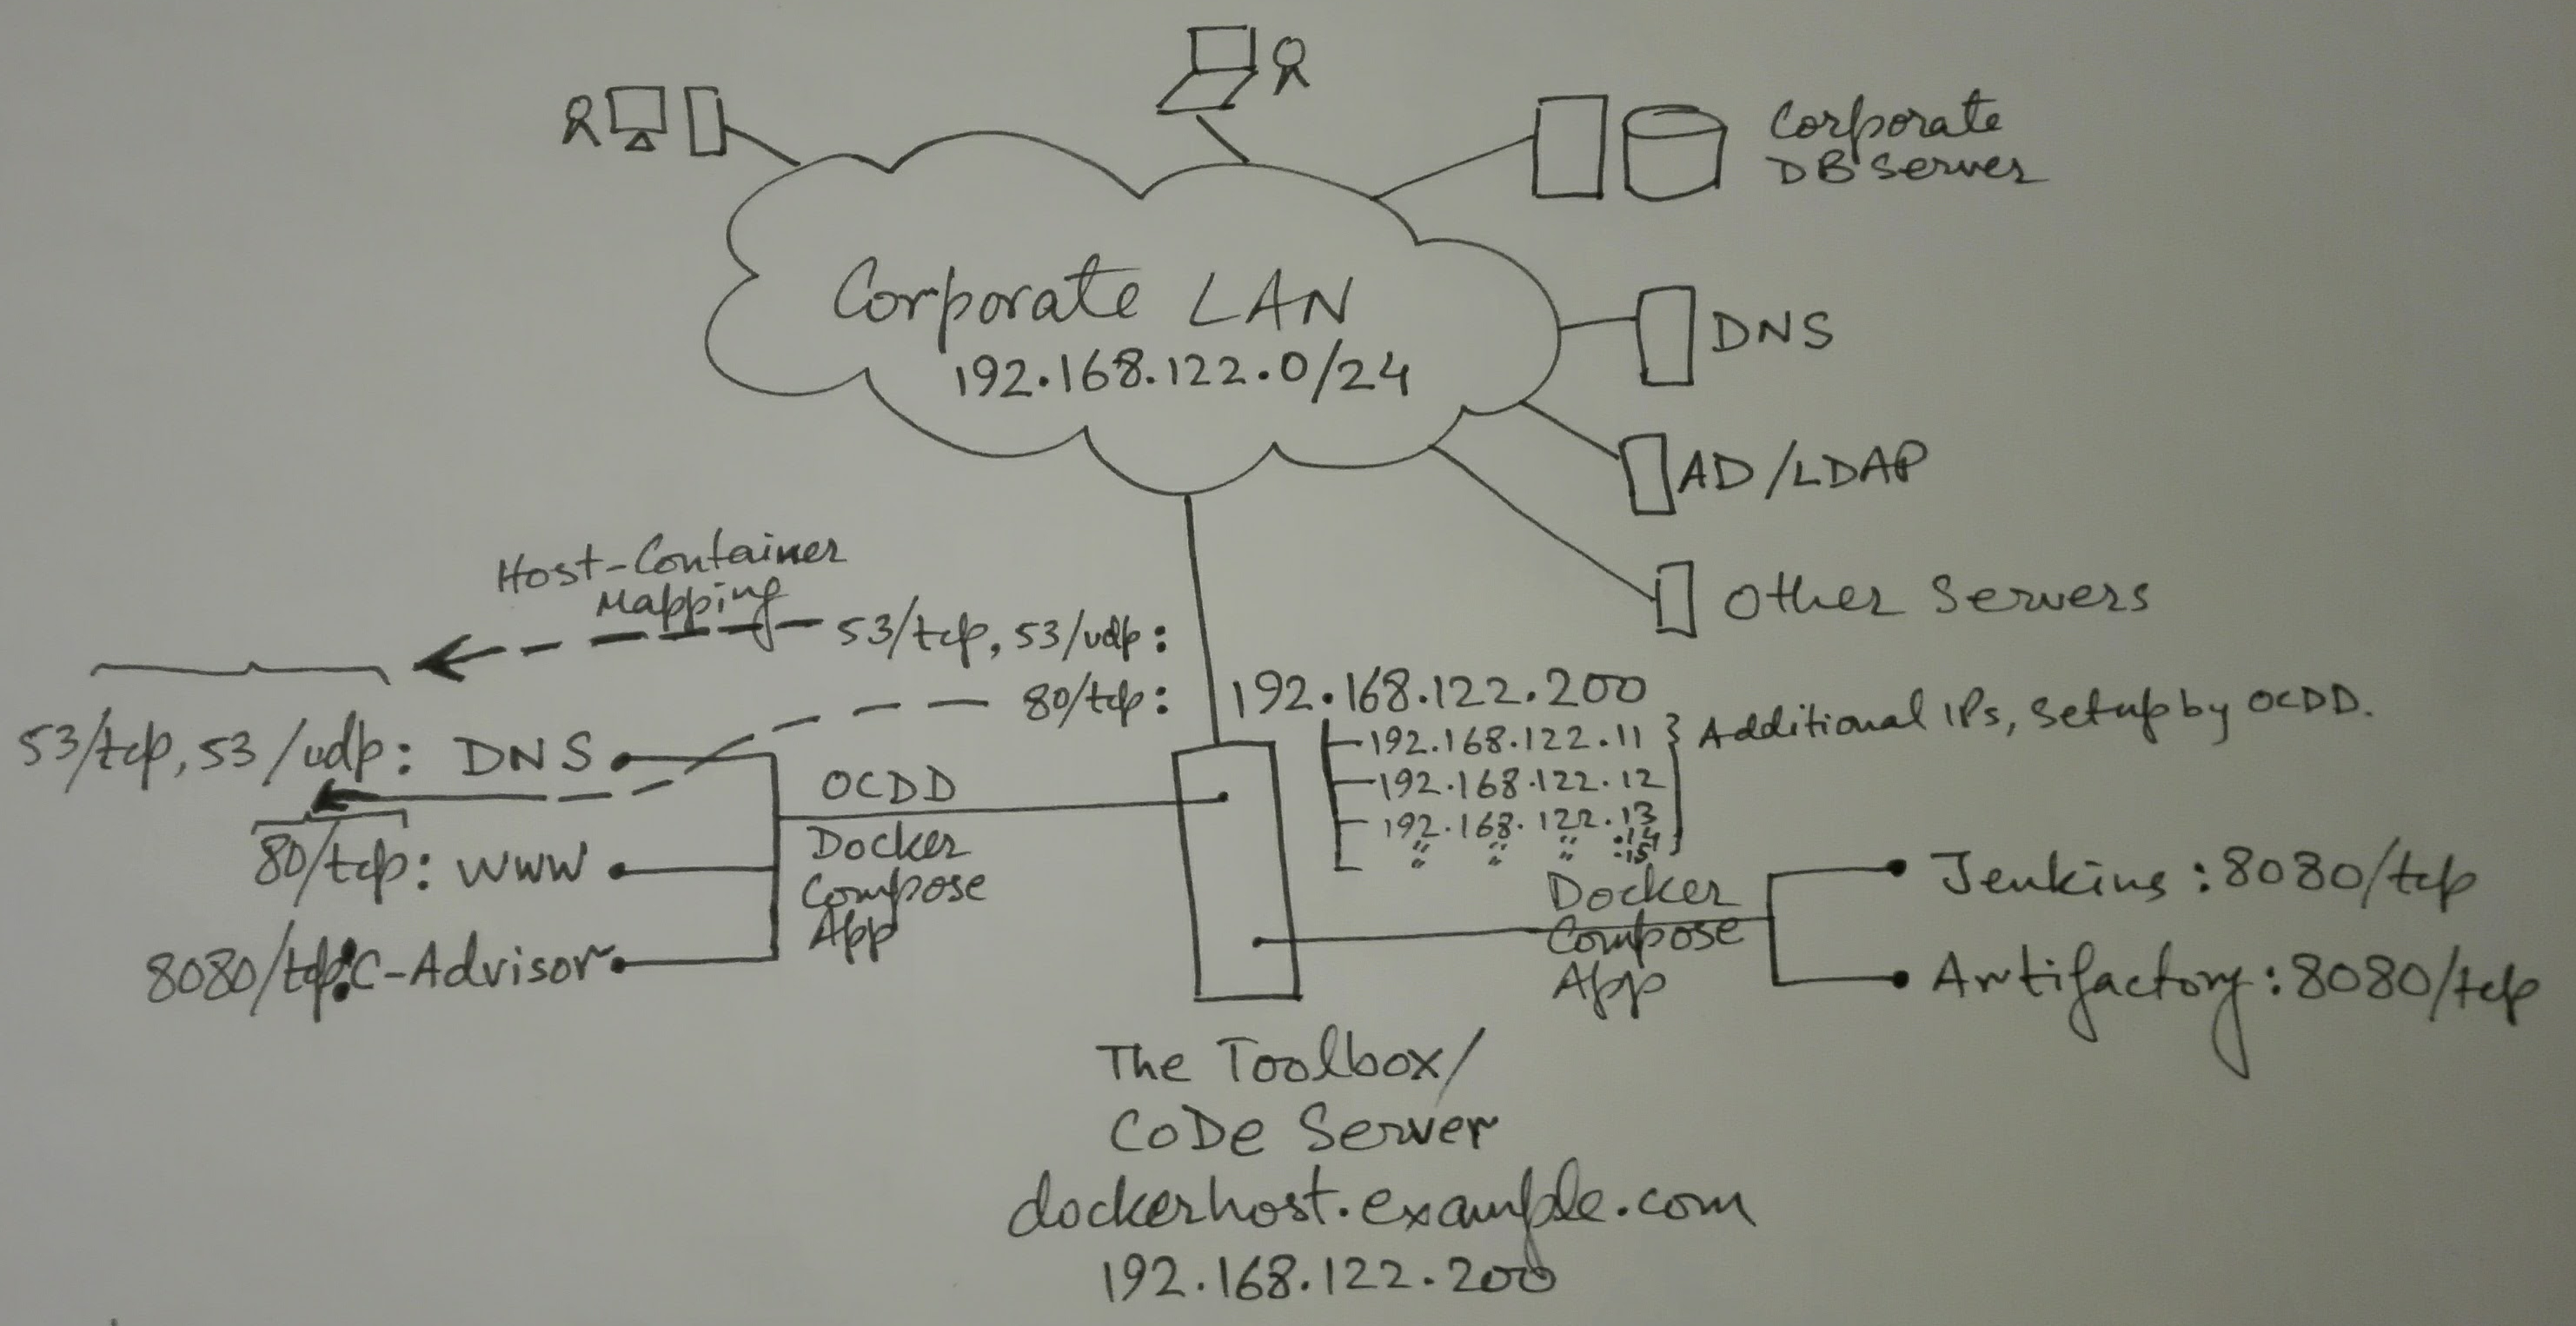 Corporate
DB Server
Corporate LAN
192.168.122.0/24
DNS
AD/LDAP
Other Servers
Host-Container
Mapping
53/tcp, 53/udp:
80/tcp:
192.168.122.200
192.168.122.11
192.168.122.12
192.168.122.13
" " " .14
.15
} Additional IPs, Setup by OCDD.
53/tcp, 53/udp: DNS
80/tcp: WWW
8080/tcp: C-Advisor
OCDD
Docker
Compose
App
Docker
Compose
App
Jenkins :8080/tcp
Artifactory :8080/tcp
The Toolbox/
CoDe Server
dockerhost.example.com
192.168.122.200